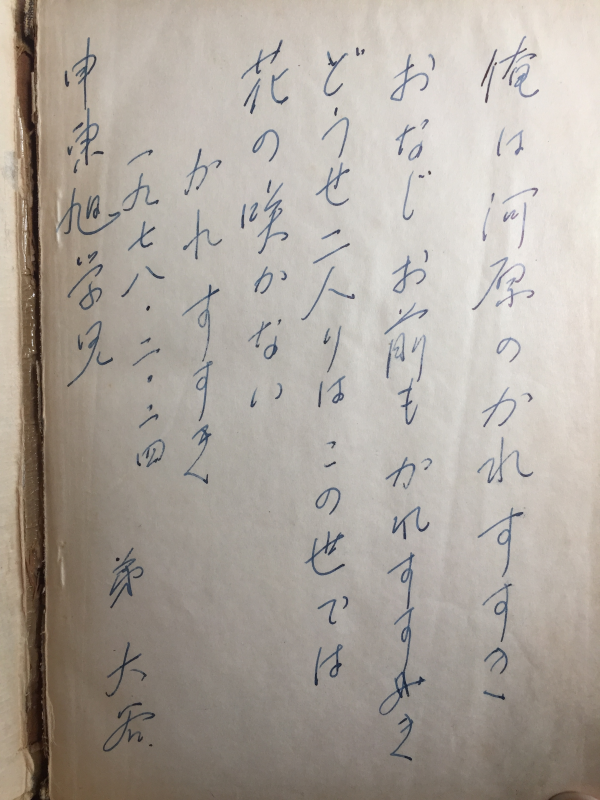 俺は河原のかれすすき
おなじお前もかれすすき
どうせ二人りはこの世では
花の咲かない
かれすすき
一九七八・二・二四
弟 大谷
申東旭学兄